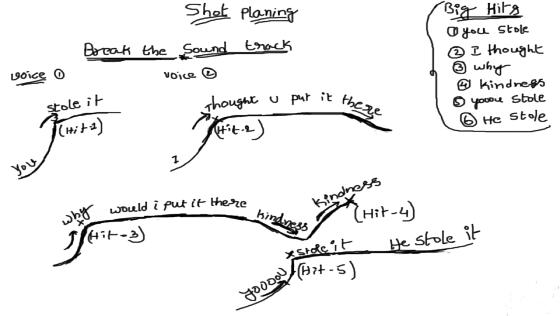 Shot planing
Break the Sound track
voice ①
voice ②
you stole it
(Hit-1)
I thought u put it there
(Hit-2)
why would i put it there kindness kindness
(Hit-3)
(Hit-4)
yooooou stole it He stole it
(Hit-5)
Big Hits
① you stole
② I thought
③ why
④ kindness
⑤ yoou stole
⑥ He stole